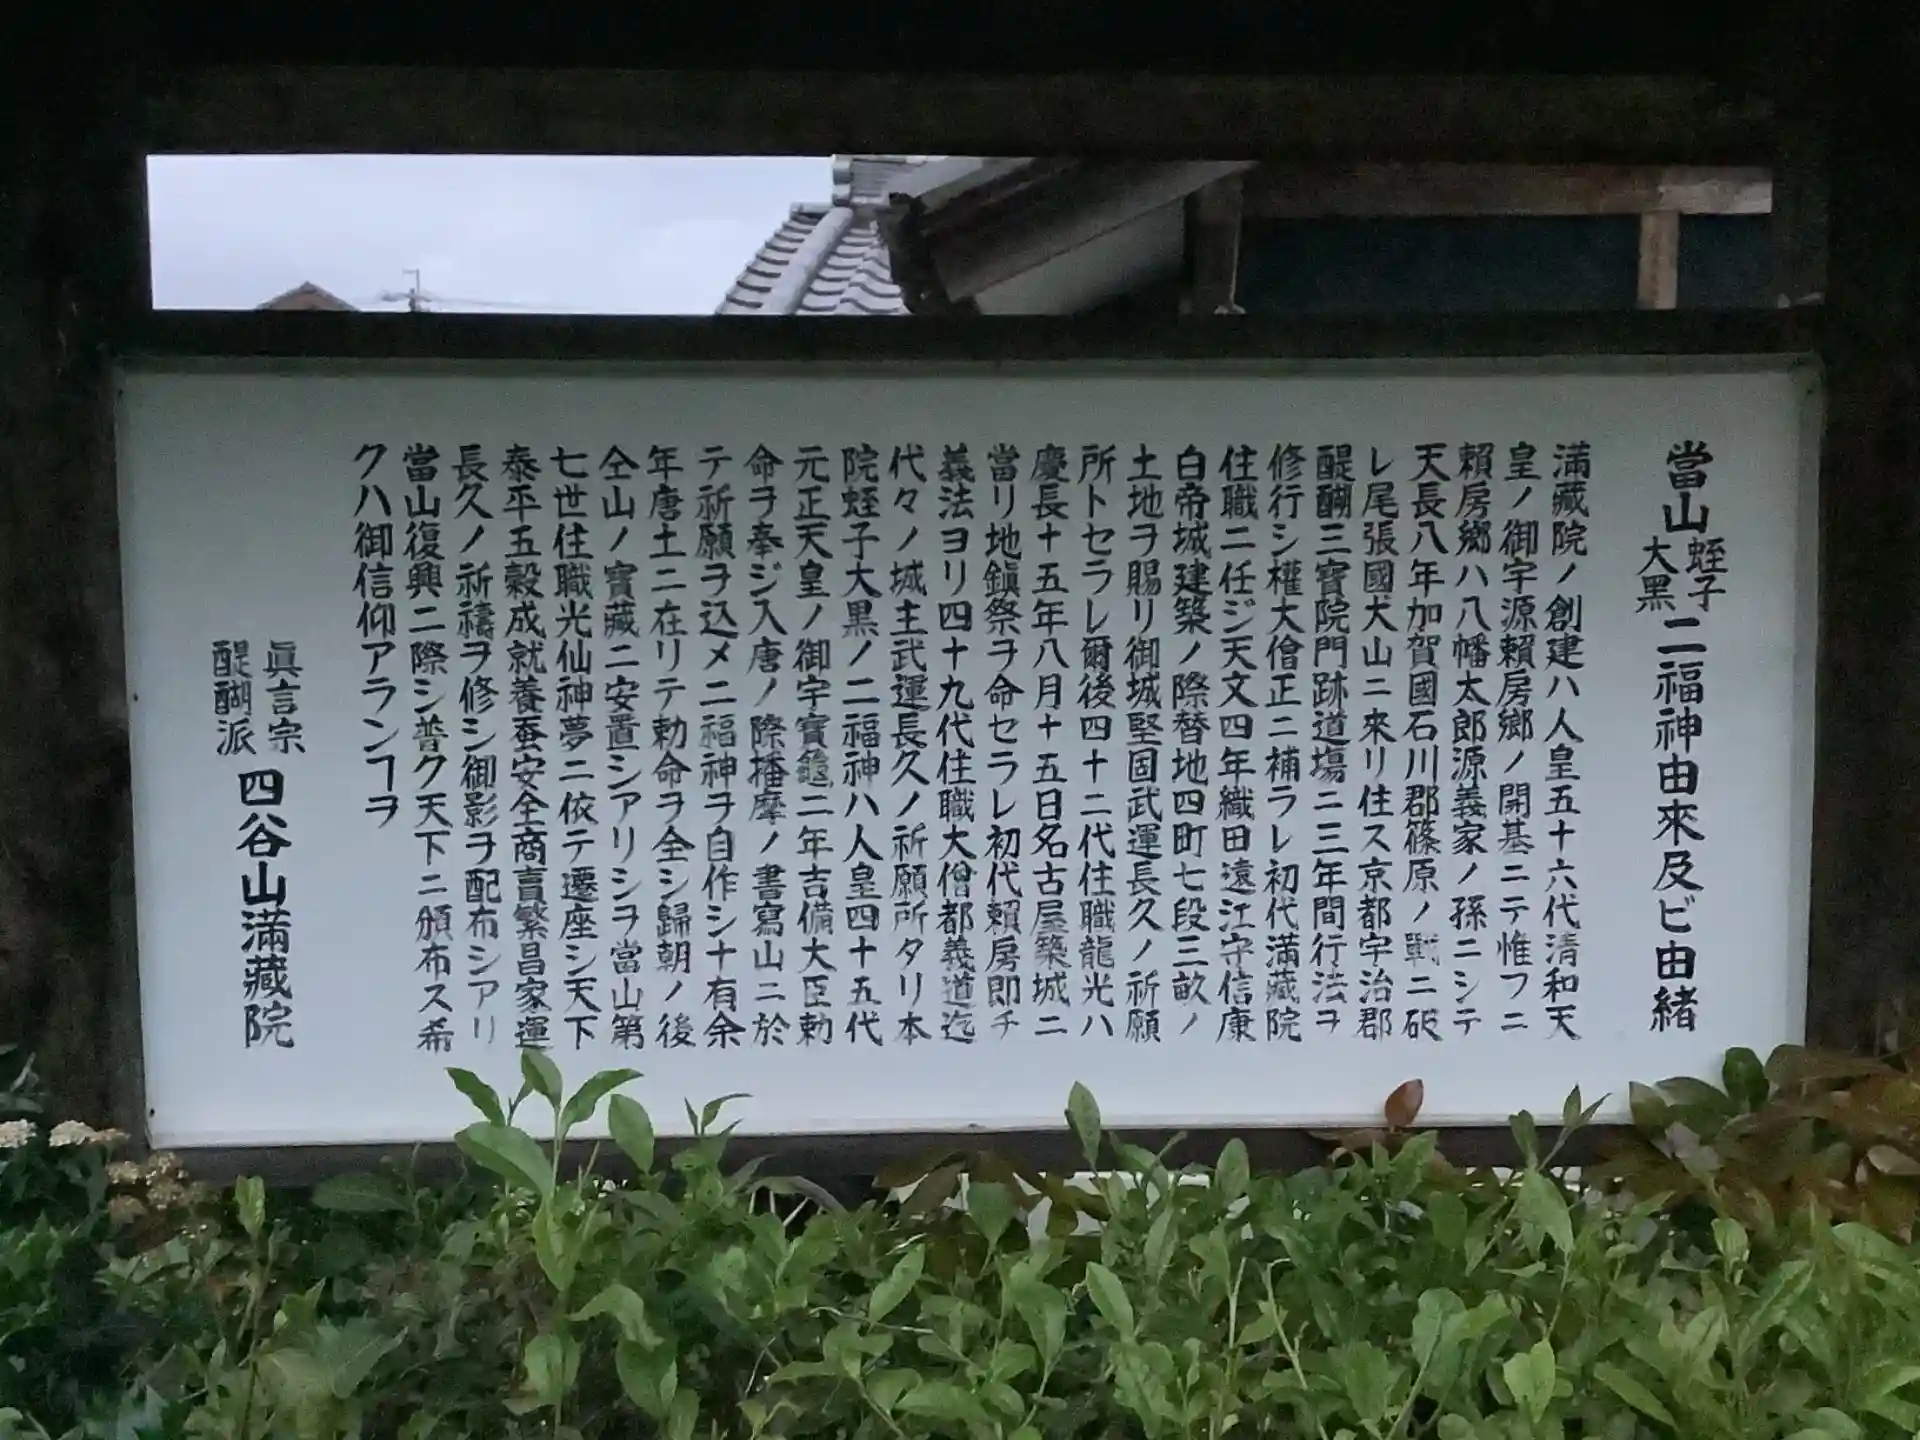 當山蛭子大黒二福神由來及ビ由緒
満藏院ノ創建ハ人皇五十六代清和天
皇ノ御宇源賴房郷ノ開基ニテ惟フニ
賴房郷ハ八幡太郎源義家ノ孫ニシテ
天長八年加賀國石川郡篠原ノ戰ニ破
レ尾張國犬山ニ來リ住ス京都宇治郡
醍醐三寶院門跡道場ニ三年間行法ヲ
修行シ權大僧正ニ補ラレ初代満藏院
住職ニ任ジ天文四年織田遠江守信康
白帝城建築ノ際替地四町七段三畝ノ
土地ヲ賜リ御城堅固武運長久ノ祈願
所トセラレ爾後四十二代住職龍光ハ
慶長十五年八月十五日名古屋築城ニ
當リ地鎮祭ヲ命セラレ初代賴房即チ
義法ヨリ四十九代住職大僧都義道迄
代々ノ城主武運長久ノ祈願所タリ本
院蛭子大黒ノ二福神ハ人皇四十五代
元正天皇ノ御宇寶龜二年吉備大臣勅
命ヲ奉ジ入唐ノ際播摩ノ書寫山ニ於
テ祈願ヲ込メ二福神ヲ自作シ十有余
年唐土ニ在リテ勅命ヲ全シ歸朝ノ後
仝山ノ寶藏ニ安置シアリシヲ當山第
七世住職光仙神夢ニ依テ遷座シ天下
泰平五穀成就養蚕安全商賣繁昌家運
長久ノ祈禱ヲ修シ御影ヲ配布シアリ
當山復興ニ際シ普ク天下ニ頒布ス希
クハ御信仰アランヿヲ
眞言宗
醍醐派
四谷山満藏院